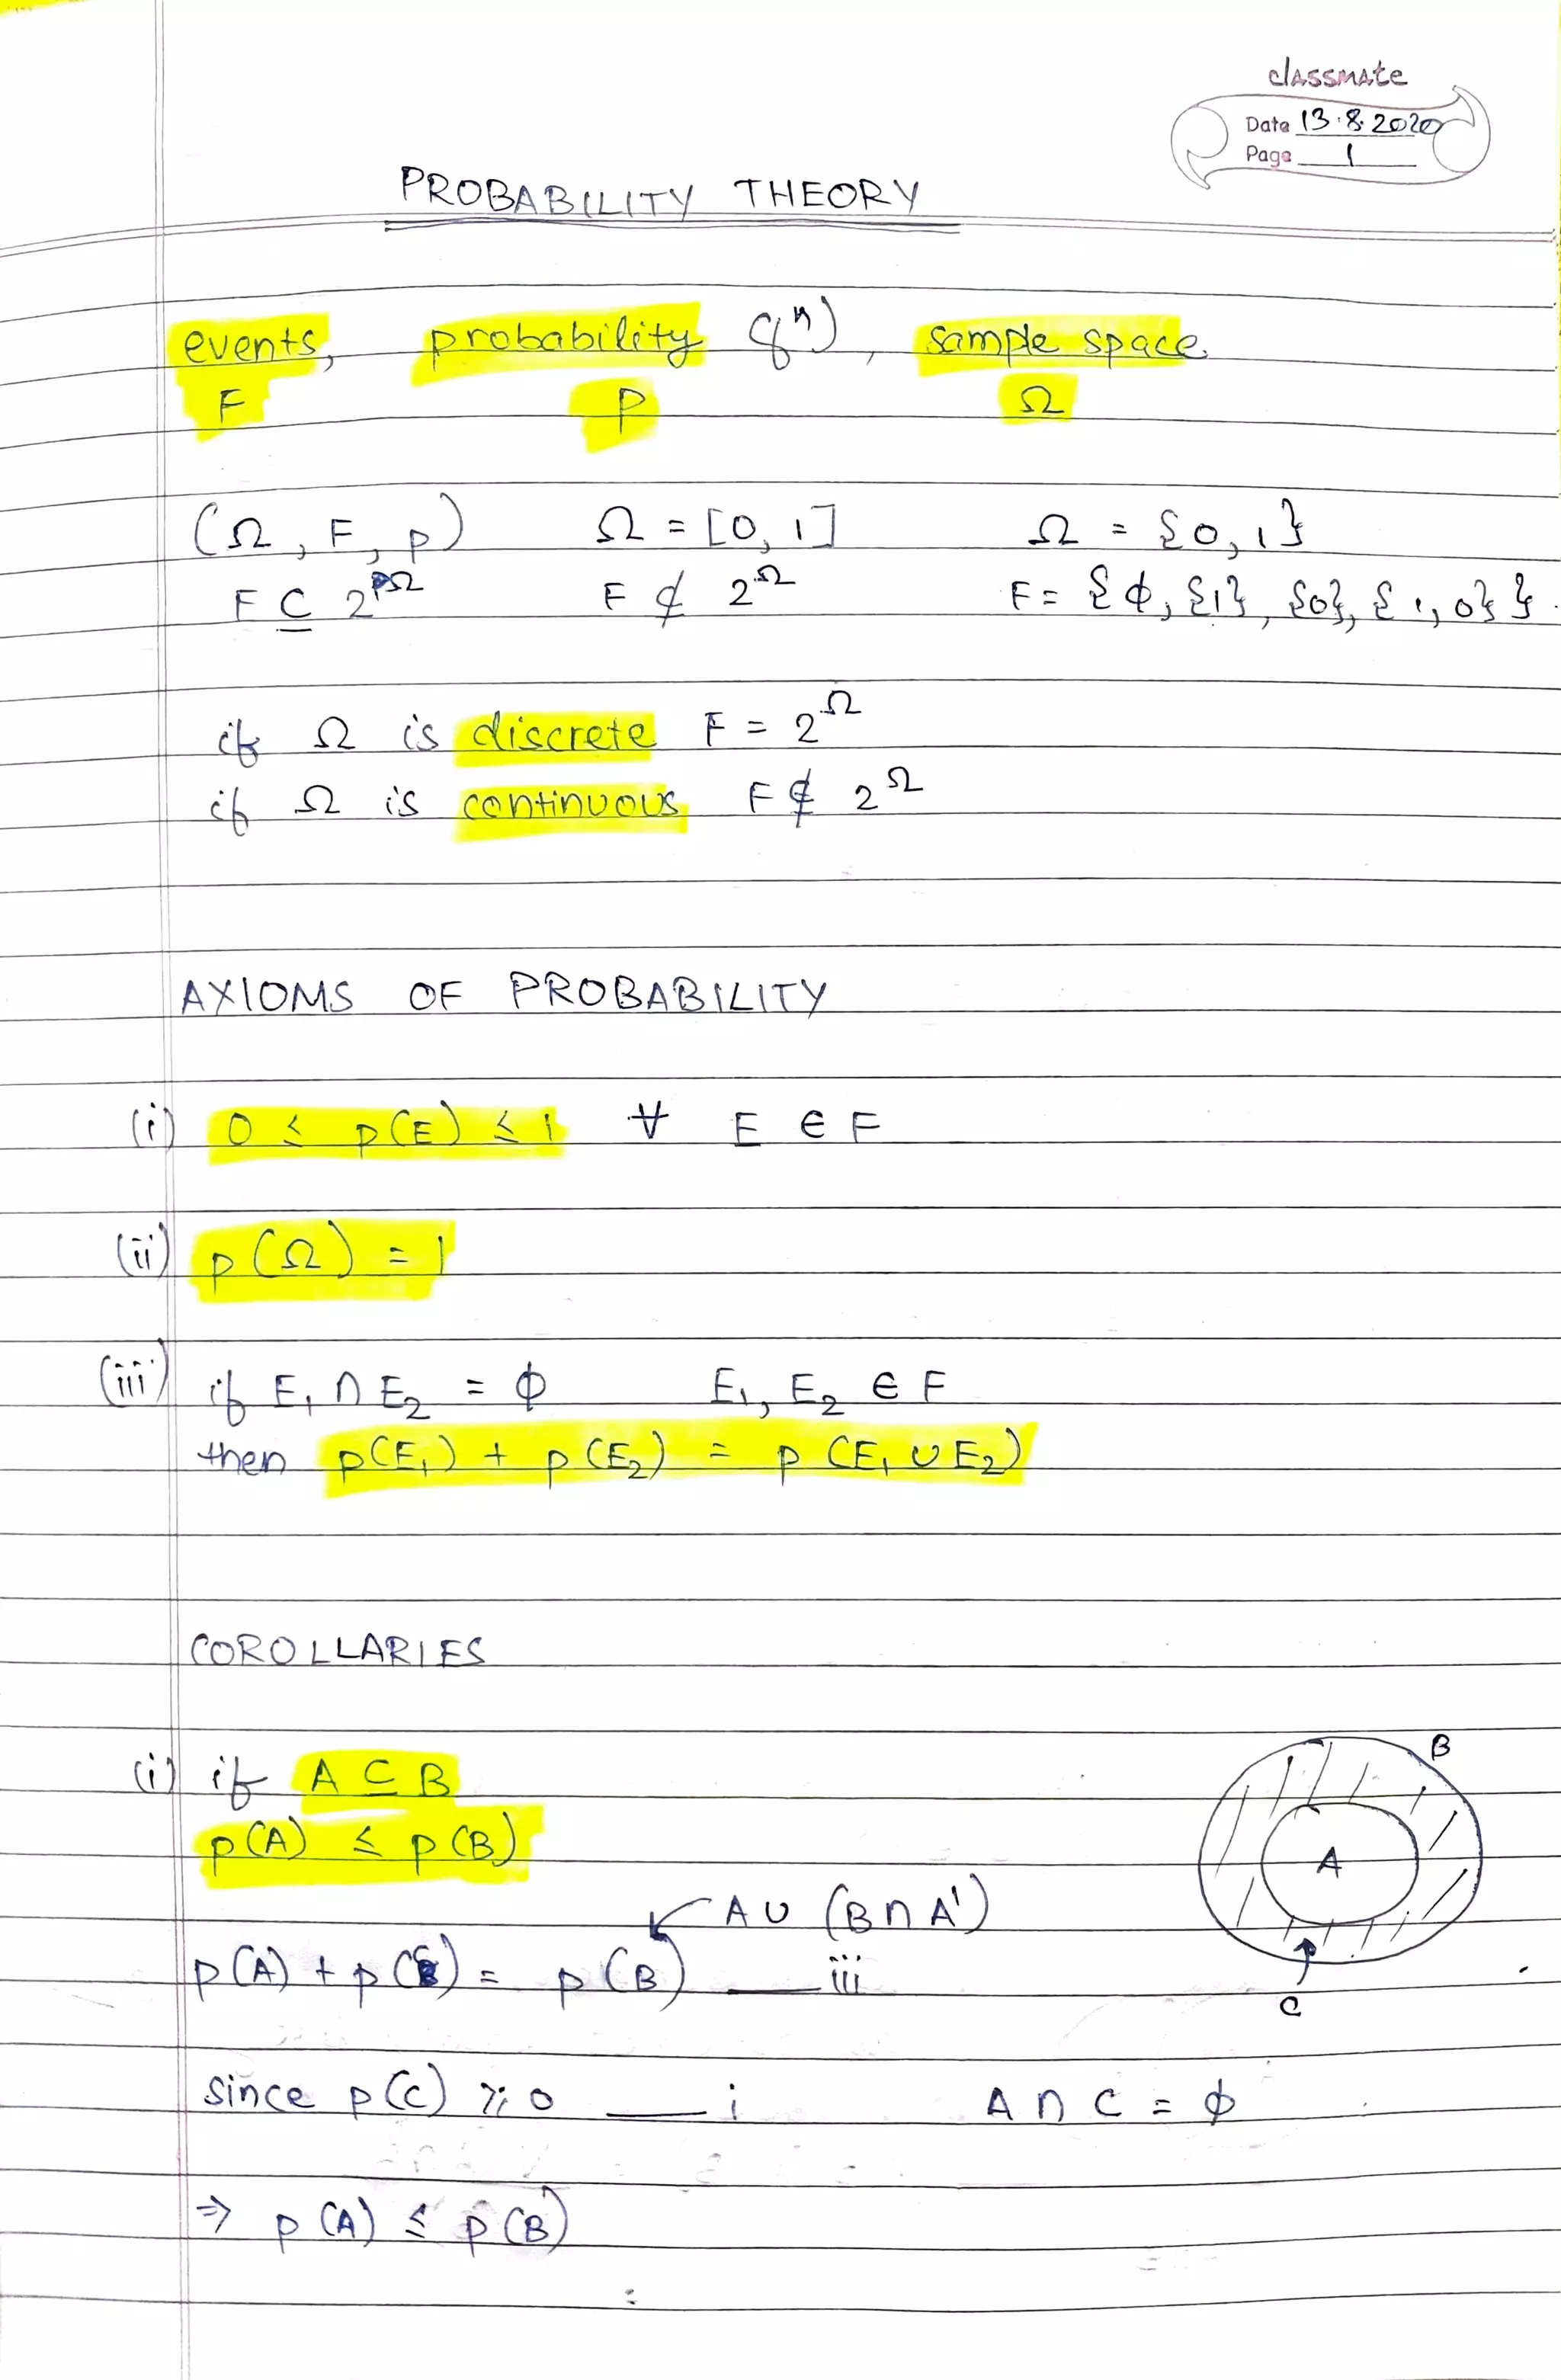 classmate
Date 13.8.2020
Page 1
PROBABILITY THEORY
events, probability (fⁿ), sample space
F p Ω
(Ω, F, p) Ω = [0, 1] Ω = {0, 1}
F ⊆ 2^Ω F ⊄ 2^Ω F = {ϕ, {1}, {0}, {1, 0}}
if Ω is discrete F = 2^Ω
if Ω is continuous F ⊈ 2^Ω
AXIOMS OF PROBABILITY
(i) 0 ≤ p(E) ≤ 1 ∀ E ∈ F
(ii) p(Ω) = 1
(iii) if E₁ ∩ E₂ = ϕ E₁, E₂ ∈ F
then p(E₁) + p(E₂) = p(E₁ ∪ E₂)
COROLLARIES
(i) if A ⊆ B
B
p(A) ≤ p(B)
A
A ∪ (B ∩ A')
p(A) + p(C) = p(B) — iii
C
since p(C) ≥ 0 — i A ∩ C = ϕ
⇒ p(A) ≤ p(B)